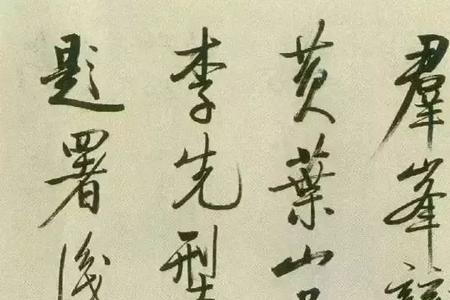 羣峯
黄葉山
李先型
題署後